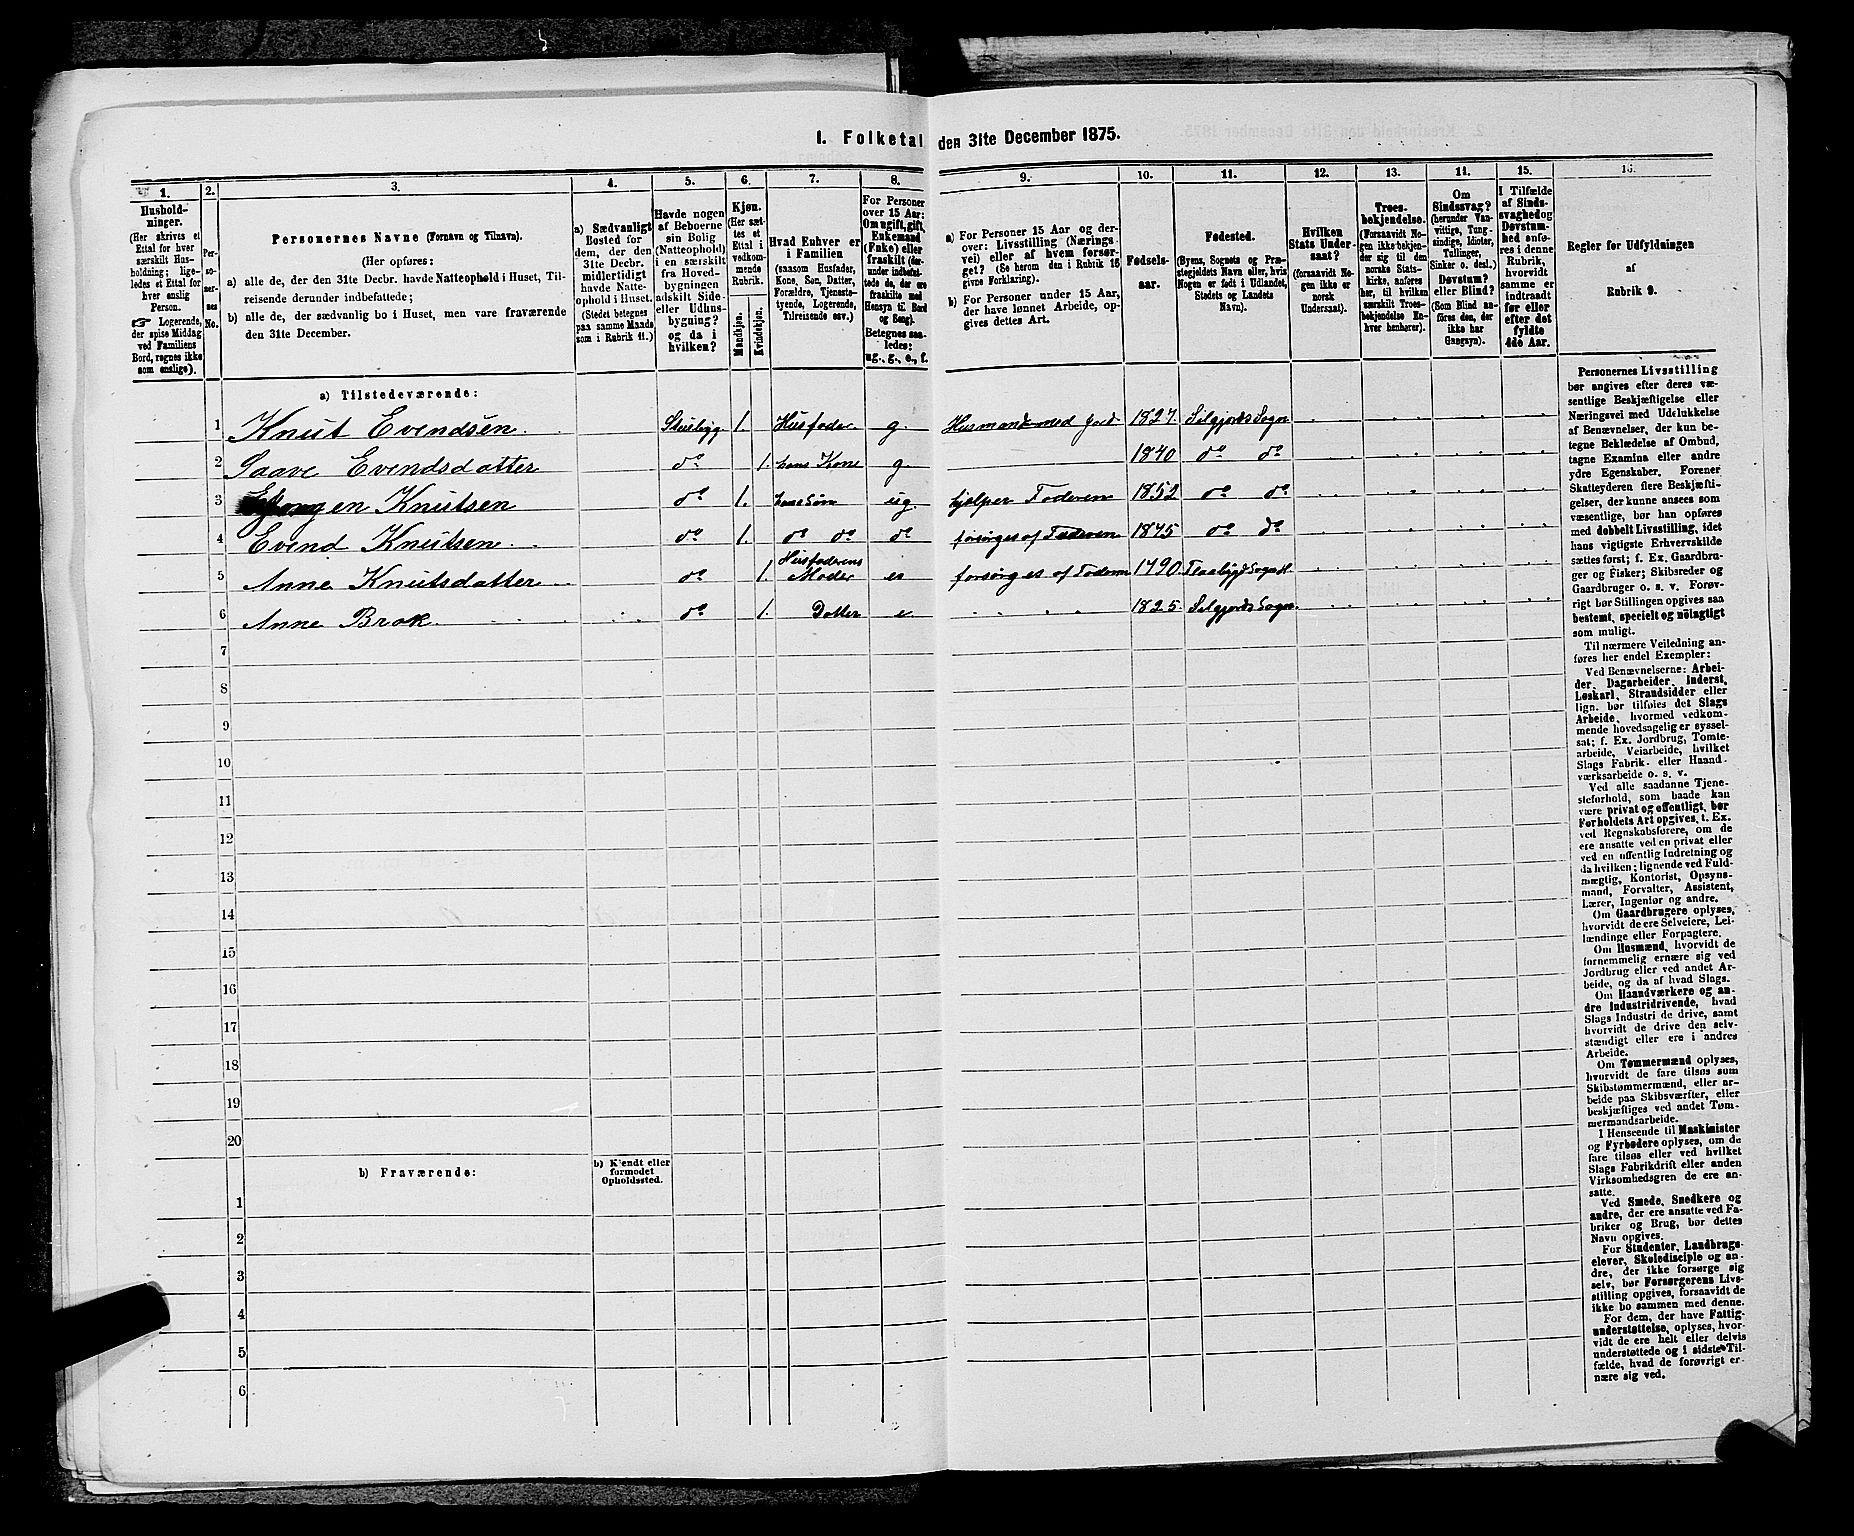 1. Folketal den 31te December 1875.
1. 2. 3. 4. 5. 6. 7. 8. 9. 10. 11. 12. 13. 14. 15. 16.
Hushold-
ninger.
(Her skrives et
Ettal for hver
særskilt Hus-
holdning; lige-
ledes et Ettal for
hver enslig
Person.
☞ Logerende,
der spise Middag
ved Familiens
Bord, regnes ikke
som enslige).
Per-
so-
ner-
nes
No.
Personernes Navne (Fornavn og Tilnavn).
(Her opføres:
a) alle de, der den 31te Decbr. havde Natteophold i Huset, Til-
reisende derunder indbefattede;
b) alle de, der sædvanlig bo i Huset, men vare fraværende
den 31te December.
a) Sædvanligt
Bosted for
dem, der den
31te Decbr.
midlertidigt
havde Natte-
ophold i Huset.
(Stedet betegnes
paa samme Maade
som i Rubrik 11.)
Havde nogen
af Beboerne
sin Bolig
(Natteophold)
i en særskilt
fra Hoved-
bygningen
adskilt Side-
eller Udhus-
bygning?
og da i
hvilken?
Kjøn.
(Her sæt-
tes et
Ettal i
vedkom-
mende
Rubrik.
Mandkjøn.
Kvindekjøn.
Hvad Enhver er
i Familien
(saasom Husfader,
Kone, Søn, Datter,
Forældre, Tjeneste-
tyende, Logerende,
Tilreisende osv.)
For Personer
over 15 Aar:
Om ugift, gift,
Enkemand
(Enke) eller
fraskilt (der-
under indbefat-
tede de, der ere
fraskilte med
Hensyn til Bord
og Seng).
Betegnes saa-
ledes:
ug., g., e., f.
a) For Personer 15 Aar og der-
over: Livsstilling (Nærings-
vei) eller af hvem forsør-
get? (Se herom den i Rubrik 16
givne Forklaring).
b) For Personer under 15 Aar,
der have lønnet Arbeide, op-
gives dettes Art.
Fødsels-
aar.
Fødested.
(Byens, Sognets og Præ-
stegjeldets Navn eller, hvis
Nogen er født i Udlandet,
Stedets og Landets
Navn).
Hvilken
Stats Under-
saat?
(forsaavidt No-
gen ikke er
norsk
Undersaat).
Troes-
bekjendelse.
(Forsaavidt No-
gen ikke bekjen-
der sig til den
norske Stats-
kirke, anføres
her, til hvilken
særskilt Troes-
bekjendelse En-
hver henhører).
Om
Sindssvag?
(herunder Van-
vittige, Tung-
sindige, Idioter,
Tullinger,
Sinker o. desl.)
Døvstum?
eller Blind?
(Som Blind an-
føres den, der
ikke har
Gangsyn).
I Tilfælde
af Sinds-
svaghed og
Døvstum-
hed anfø-
res i denne
Rubrik,
hvorvidt
samme er
indtraadt
før eller
efter det
fyldte
4de Aar.
Regler for Udfyldningen
af
Rubrik 9.
a) Tilstedeværende:
1 Knut Evendsen. 1. Husfader g. Husmand med Jord. 1827. Silgjords Sogn
2 Saave Evendsdatter do 1. hans Kone g. 1840 do do
3 Knutsen do 1. hans Søn ug. hjelper Faderen 1852 do do
4 Evend Knutsen do 1. do do do forsørges af Faderen 1875 do do
Husfaderens
5 Anne Knutsdatter do 1. Moder e. forsørges af 1790. Flaabygd Sogn
6 Anne Brok do 1. Datter e 1825. Silgjords Sogn.
7
8
9
10
11
12
13
14
15
16
17
18
19
20
b) Fraværende:
b) Kjendt eller
formodet
Opholdssted.
1
2
3
4
5
6
Personernes Livsstilling
bør angives efter deres væ-
sentlige Beskjæftigelse eller
Næringsvei med Udelukkelse
af Benævnelser, der kun be-
tegne Beklædelse af Ombud,
tagne Examina eller andre
ydre Egenskaber. Forener
Skatteyderen flere Beskjæfti-
gelser, der kunne ansees som
væsentlige, bør han opføres
med dobbelt Livsstilling, idet
hans vigtigste Erhvervskilde
sættes først; f. Ex. Gaardbru-
ger og Fisker; Skibsreder og
Gaardbruger o. s. v. Forøv-
rigt bør Stillingen opgives saa
bestemt, specielt og nøiagtigt
som muligt.
Til nærmere Veiledning an-
føres her endel Exempler:
Ved Benævnelserne: Arbei-
der, Dagarbeider, Inderst,
Løskarl, Strandsidder eller
lign. bør tilføies det Slags
Arbeide, hvormed vedkom-
mende hovedsagelig er syssel-
sat; f. Ex. Jordbrug, Tomte-
arbeide, Veiarbeide, hvilket
Slags Fabrik- eller Haand-
værksarbeide o. s. v.
Ved alle saadanne Tjene-
steforhold, som baade kan
være privat og offentligt, bør
Forholdets Art opgives, t. Ex.
ved Regnskabsførere, om de
ere ansatte ved en privat eller
ved en offentlig Indretning og
da hvilken; lignende ved Fuld-
mægtig, Kontorist, Opsyns-
mand, Forvalter, Assistent,
Lærer, Ingeniør og andre.
Om Gaardbrugere oplyses,
hvorvidt de ere Selveiere, Lei-
lændinge eller Forpagtere.
Om Husmænd, hvorvidt de
fornemmelig ernære sig ved
Jordbrug eller ved andet Ar-
beide, og da af hvad Slags.
Om Haandværkere og an-
dre Industridrivende, hvad
Slags Industri de drive, samt
hvorvidt de drive den selv-
stændigt eller ere i andres
Arbeide.
Om Tømmermænd oplyses,
hvorvidt de fare tilsøs som
Skibstømmermænd, eller ar-
beide paa Skibsværfter, eller
beskjæftiges ved andet Tøm-
mermandsarbeide.
I Henseende til Maskinister
og Fyrbødere oplyses, om de
fare tilsøs eller ved hvilket
Slags Fabrikdrift eller anden
Virksomhedsgren de ere an-
satte.
Ved Smede, Snedkere og
andre, der ere ansatte ved Fa-
briker og Brug, bør dettes
Navn opgives.
For Studenter, Landbrugs-
elever, Skoledisciple og an-
dre, der ikke forsørge sig
selv, bør Forsørgerens Livs-
stilling opgives, forsaavidt de
ikke bo sammen med denne.
For dem, der have Fattig-
understøttelse, oplyses, hvor-
vidt de ere helt eller delvis
understøttede og i sidste Til-
fælde, hvad de forøvrigt er-
nære sig ved.